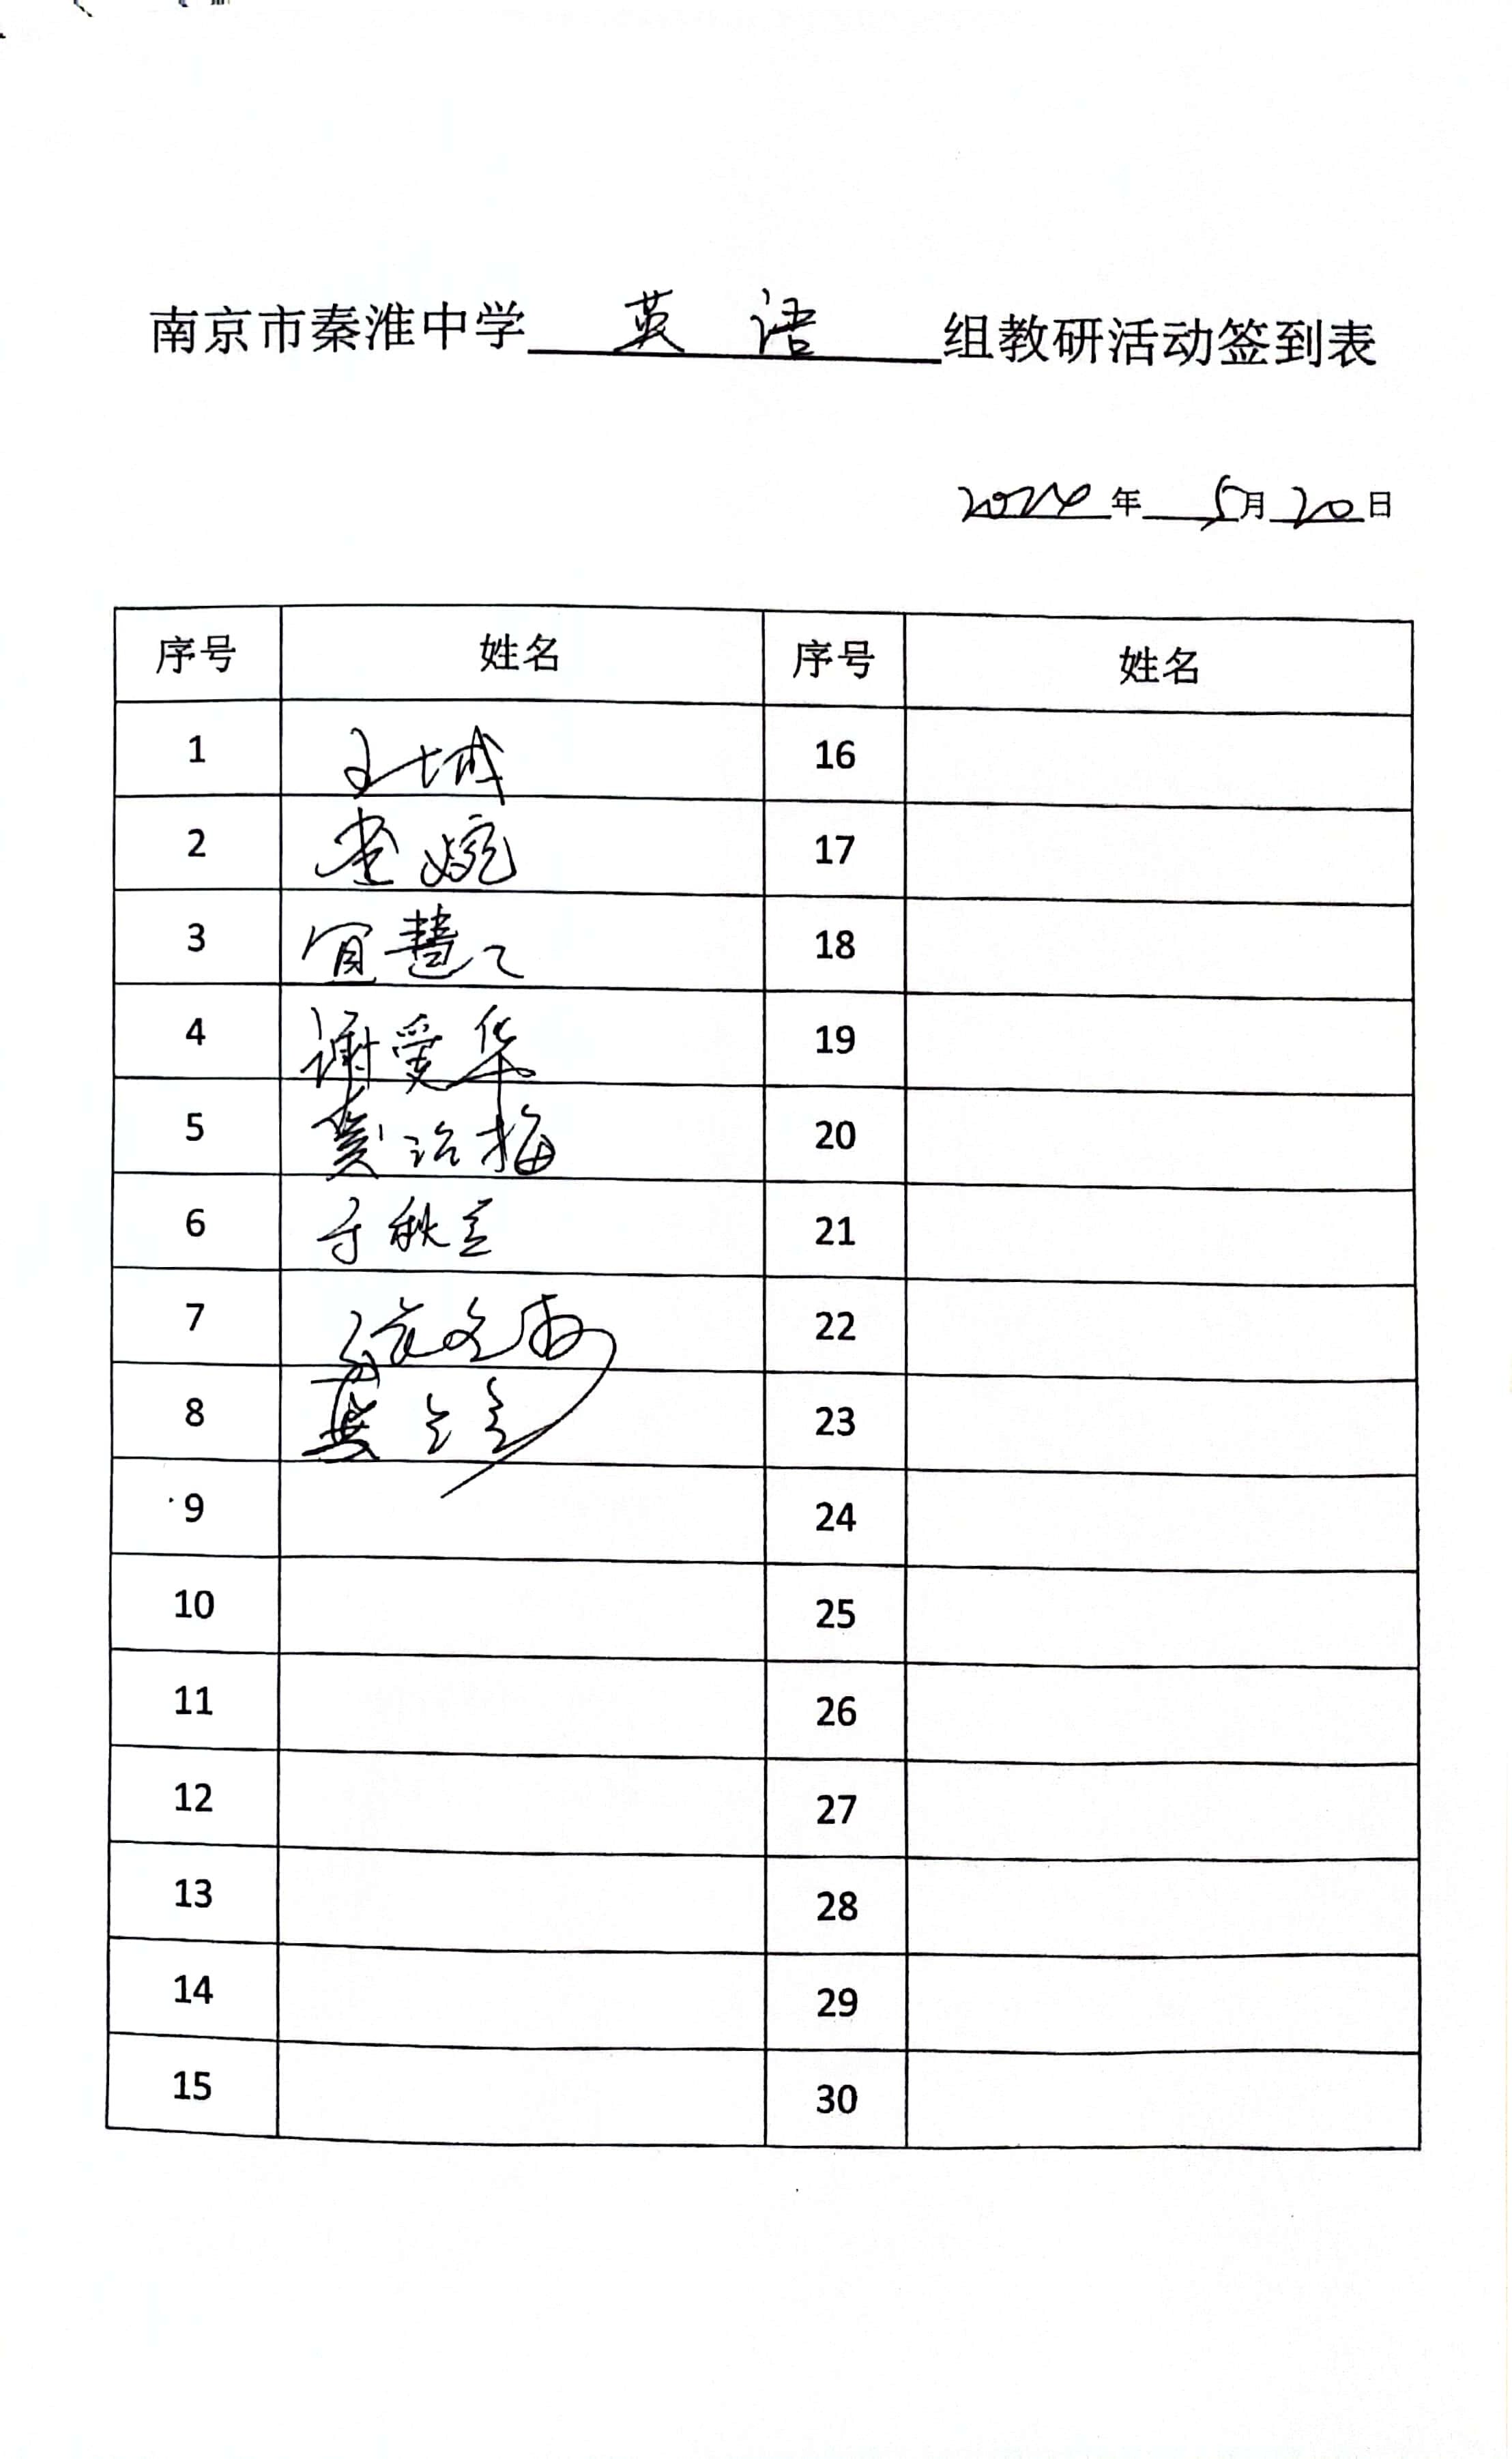 南京市秦淮中学 英语 组教研活动签到表
2024年 5月20日
序号 姓名 序号 姓名
1 王城 16
2 婉 17
3 宜慧 18
4 谢爱华 19
5 梅 20
6 于秋兰 21
7 文 22
8 龚 23
9 24
10 25
11 26
12 27
13 28
14 29
15 30